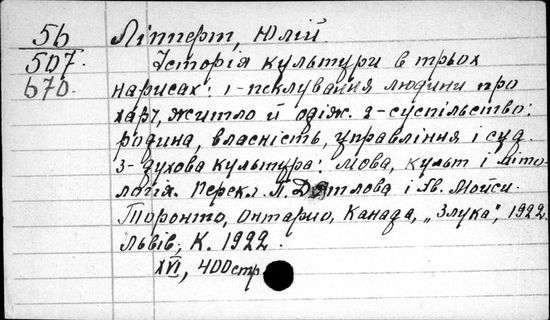 56
507.
670.
Ліпперт, Юлій
Історія культури в трьох
нарисах: 1-псклування людини про
харч, житло й одіж. 2-суспільство:
родина, власність, управління і суд.
3-духова культура: мова, культ і міто-
логія. Перекл. П. Дятлова і Ів. Мойси.
Торонто, Онтарио, Канада, „Злука", 1922.
Львів, К. 1922.
XVI, 400 стр